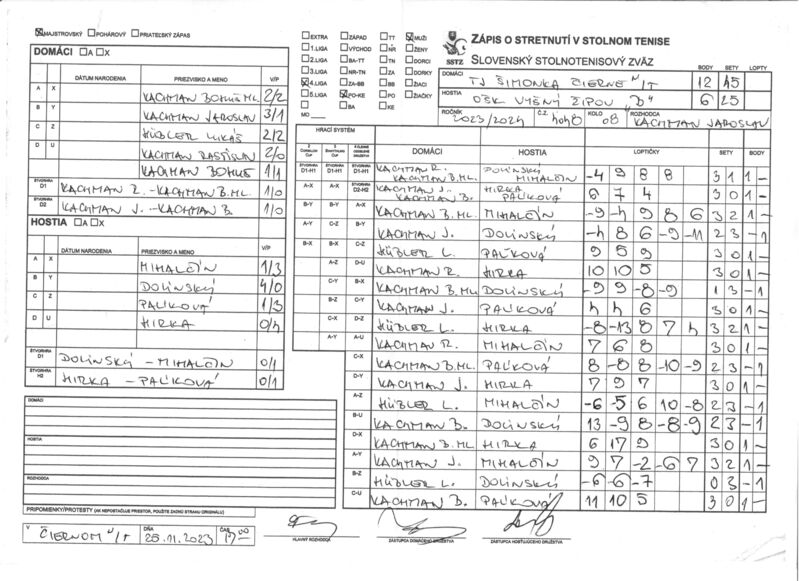 ☒MAJSTROVSKÝ ☐POHÁROVÝ ☐PRIATEĽSKÝ ZÁPAS
DOMÁCI ☐A ☐X
DÁTUM NARODENIA PRIEZVISKO A MENO V/P
A X KACHMAN BOHUŠ ML. 2/2
B Y KACHMAN JAROSLAV 3/1
C Z HÜBLER LUKÁŠ 2/2
D U KACHMAN RASTISLAV 2/0
KACHMAN BOHUŠ 1/1
ŠTVORHRA D1 KACHMAN R. - KACHMAN B.ML. 1/0
ŠTVORHRA D2 KACHMAN J. - KACHMAN B. 1/0
HOSTIA ☐A ☐X
DÁTUM NARODENIA PRIEZVISKO A MENO V/P
A X MIHALČÍN 1/3
B Y DOLINSKÝ 4/0
C Z PALÍKOVÁ 1/3
D U HIRKA 0/4
ŠTVORHRA D1 DOLINSKÝ - MIHALČÍN 0/1
ŠTVORHRA H2 HIRKA - PALÍKOVÁ 0/1
DOMÁCI
HOSTIA
ROZHODCA
PRIPOMIENKY/PROTESTY (AK NEPOSTAČUJE PRIESTOR, POUŽITE ZADNÚ STRANU ORIGINÁLU)
V ČIERNOM N/T DŇA 25.11.2023 ČAS 17 00
☐EXTRA ☐ZÁPAD ☐TT ☒MUŽI
☐1.LIGA ☐VÝCHOD ☐NR ☐ŽENY
☐2.LIGA ☐BA-TT ☐TN ☐DORCI
☐3.LIGA ☐NR-TN ☐ZA ☐DORKY
☒4.LIGA ☐ZA-BB ☐BB ☐ŽIACI
☐5.LIGA ☒PO-KE ☐PO ☐ŽIAČKY
☐ ☐BA ☐KE
MO
SSTZ
ZÁPIS O STRETNUTÍ V STOLNOM TENISE
SLOVENSKÝ STOLNOTENISOVÝ ZVÄZ
BODY SETY LOPTY
DOMÁCI TJ ŠIMONKA ČIERNE N/T 12 45
HOSTIA OŠK VYŠNÝ ŽIPOV "B" 6 25
ROČNÍK 2023/2024 Č.Z. 4048 KOLO 08 ROZHODCA KACHMAN JAROSLAV
HRACÍ SYSTÉM
DOMÁCI HOSTIA LOPTIČKY SETY BODY
ŠTVORHRA D1-H1 ŠTVORHRA D1-H1 ŠTVORHRA D1-H1 KACHMAN R. KACHMAN B.ML. DOLINSKÝ MIHALČÍN -4 9 8 8 3 1 1 -
A-X A-X ŠTVORHRA D2-H2 KACHMAN J. KACHMAN B. HIRKA PALÍKOVÁ 6 7 4 3 0 1 -
B-Y B-Y A-X KACHMAN B.ML. MIHALČÍN -9 -4 9 8 6 3 2 1 -
A-Y C-Z B-Y KACHMAN J. DOLINSKÝ -4 8 6 -9 -11 2 3 - 1
B-X B-X C-Z HÜBLER L. PALÍKOVÁ 9 5 9 3 0 1 -
A-Z D-U KACHMAN R. HIRKA 10 10 5 3 0 1 -
C-Y B-X KACHMAN B.ML. DOLINSKÝ -9 9 -8 -9 1 3 - 1
B-Z C-Y KACHMAN J. PALÍKOVÁ 4 4 6 3 0 1 -
C-X D-Z HÜBLER L. HIRKA -8 -13 8 7 4 3 2 1 -
A-Y A-U KACHMAN R. MIHALČÍN 7 6 8 3 0 1 -
C-X KACHMAN B.ML. PALÍKOVÁ 8 -8 8 -10 -9 2 3 - 1
D-Y KACHMAN J. HIRKA 7 9 7 3 0 1 -
A-Z HÜBLER L. MIHALČÍN -6 -5 6 10 -8 2 3 - 1
B-U KACHMAN B. DOLINSKÝ 13 -9 8 -8 -9 2 3 - 1
D-X KACHMAN B.ML. HIRKA 6 17 9 3 0 1 -
A-Y KACHMAN J. MIHALČÍN 9 7 -2 -6 7 3 2 1 -
B-Z HÜBLER L. DOLINSKÝ -6 -6 -7 0 3 - 1
C-U KACHMAN B. PALÍKOVÁ 11 10 5 3 0 1 -
HLAVNÝ ROZHODCA ZÁSTUPCA DOMÁCEHO DRUŽSTVA ZÁSTUPCA HOSŤUJÚCEHO DRUŽSTVA